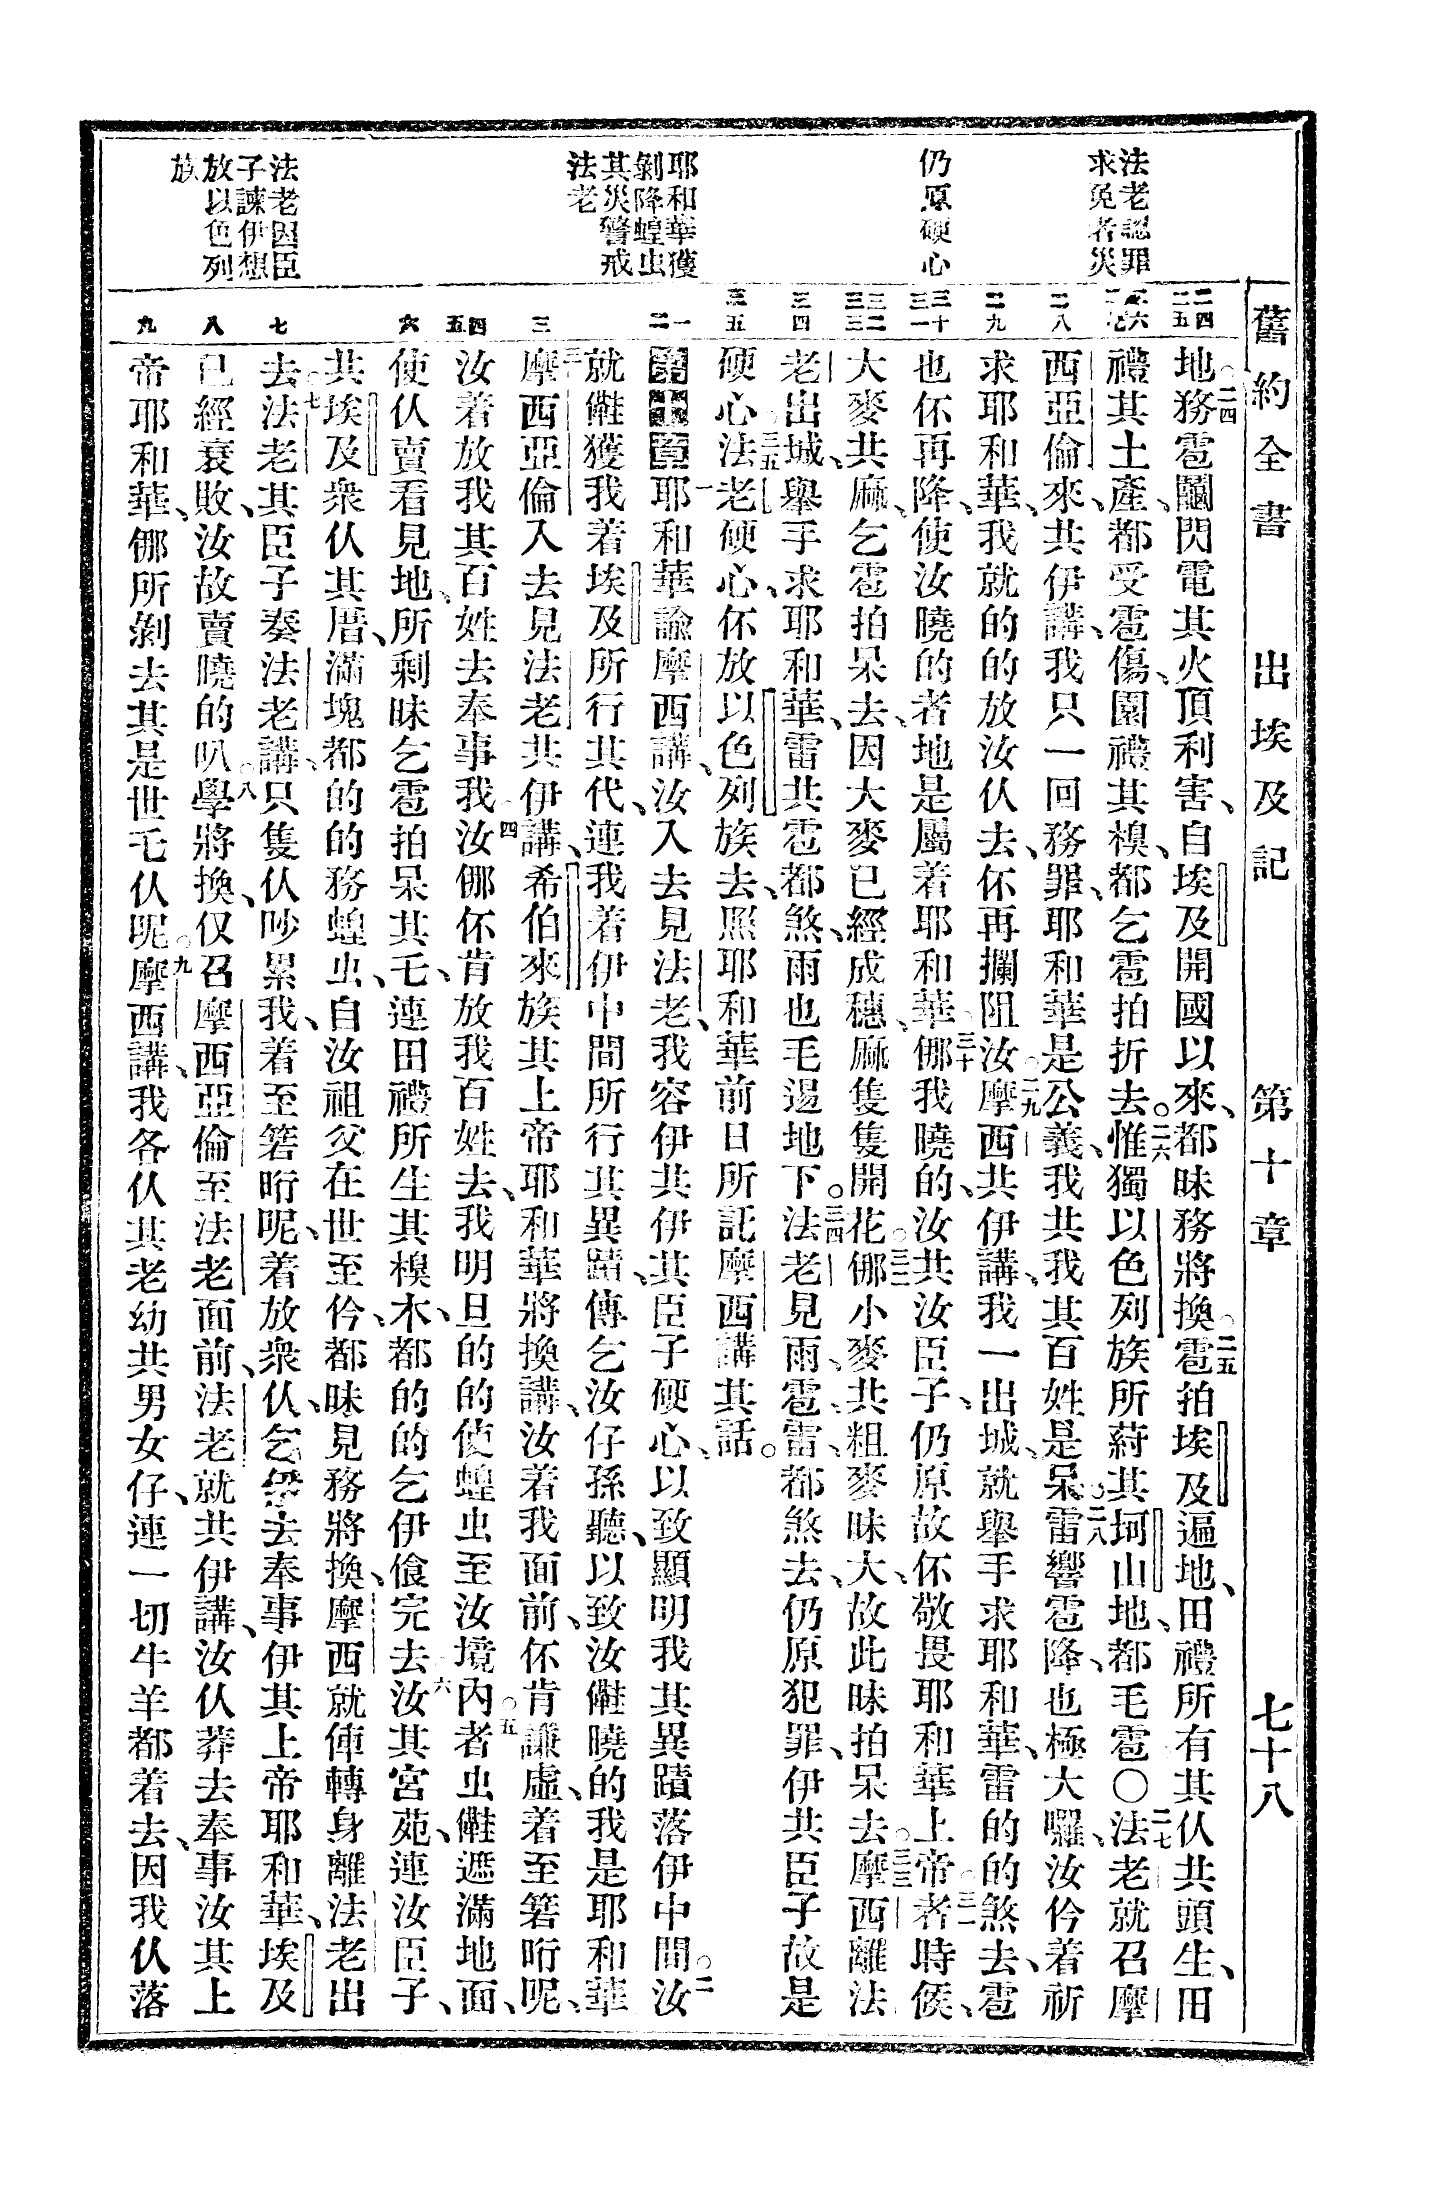 舊約全書　出埃及記　第十章　七十八
法老認罪
求免者災
仍原硬心
耶和華獲
剝降蝗虫
其災警戒
法老
法老因臣
子諫伊想
放以色列
族
地務雹䦨閃電其火頂利害、自埃及開國以來、都昧務將換○二五雹拍埃及遍地、田禮所有其仈共頭生、田
禮其土產、都受雹傷、園禮其楻、都乞雹拍折去。二六惟獨以色列族所藭其坷山地、都毛雹○二七法老就召摩
西亞倫來、共伊講、我只一回務罪、耶和華是公義、我共我其百姓是呆、○二八雷響雹降、也極大囉、汝仱着祈
求耶和華、我就的的放汝仈去、伓再攔阻汝、○二九摩西共伊講、我一出城、就舉手求耶和華、雷的的煞去、雹
也伓再降、使汝曉的者地是屬着耶和華、三十㑚我曉的、汝共汝臣子、仍原故伓敬畏耶和華上帝、○三一者時候、
大麥共麻、乞雹拍呆去、因大麥已經成穗、麻隻隻開花、○三二㑚小麥共粗麥昧大、故此昧拍呆去。○三三摩西離法
老出城、舉手求耶和華、雷共雹都煞、雨也毛逿地下。○三四法老見雨、雹、雷、都煞去、仍原犯罪、伊共臣子故是
硬心、○三五法老硬心、伓放以色列族去、照耶和華前日所託摩西講其話。
第十章一耶和華諭摩西講、汝入去見法老、我容伊共伊其臣子硬心、以致顯明我其異蹟落伊中間。○二汝
就㑿獲我着埃及所行其代、連我着伊中間所行其異蹟、傳乞汝仔孫聽、以致汝㑿曉的我是耶和華
三摩西亞倫入去見法老、共伊講、希伯來族其上帝耶和華將換講、汝着我面前、伓肯謙虛、着至箬𣆮呢、
汝着放我其百姓去奉事我、四汝㑚伓肯放我百姓去、我明旦的的使蝗虫至汝境內、○五者虫㑿遮滿地面、
使仈賣看見地、所剩昧乞雹拍呆其乇、連田禮所生其楻木、都的的乞伊飡完去、六汝其宮苑、連汝臣子、
共埃及衆仈其厝、滿塊都的的務蝗虫、自汝祖父在世至仱、都昧見務將換、摩西就俥轉身離法老出
去、○七法老其臣子奏法老講、只隻仈吵累我、着至箬𣆮呢、着放衆仈、乞伊去奉事伊其上帝耶和華、埃及
已經衰敗、汝故賣曉的叭、○八學將換、仅召摩西亞倫至法老面前、法老就共伊講、汝仈莽去奉事汝其上
帝耶和華、㑚所剝去其是世乇仈呢、○九摩西講、我各仈其老幼共男女仔、連一切牛羊都着去、因我仈落